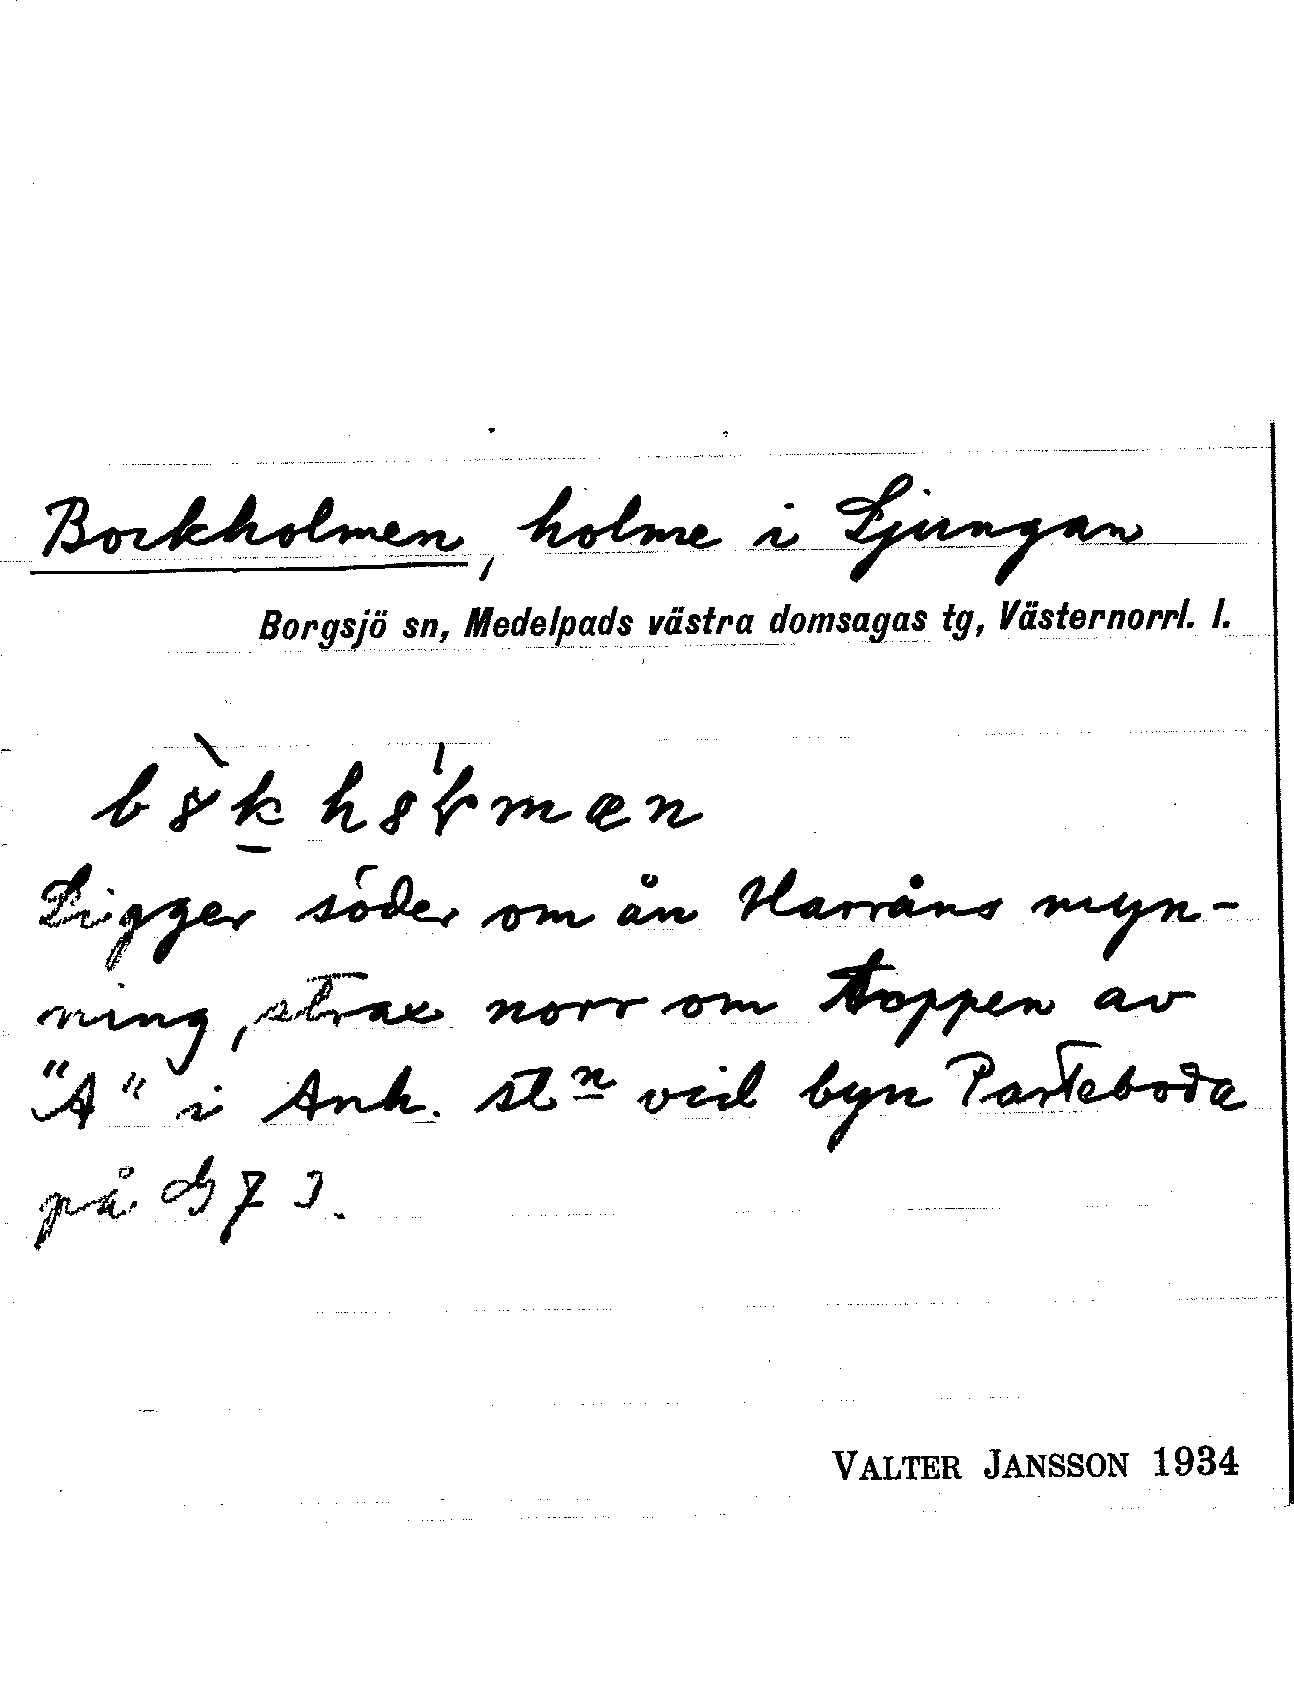 Bockholmen, holme i Ljungan
Borgsjö sn, Medelpads västra domsagas tg, Västernorrl. l.
Ligger söder om ån Harråns myn-
ning, strax norr om toppen av
"A" i Anh. stn vid byn Parteboda
på G 7 J.
VALTER JANSSON 1934